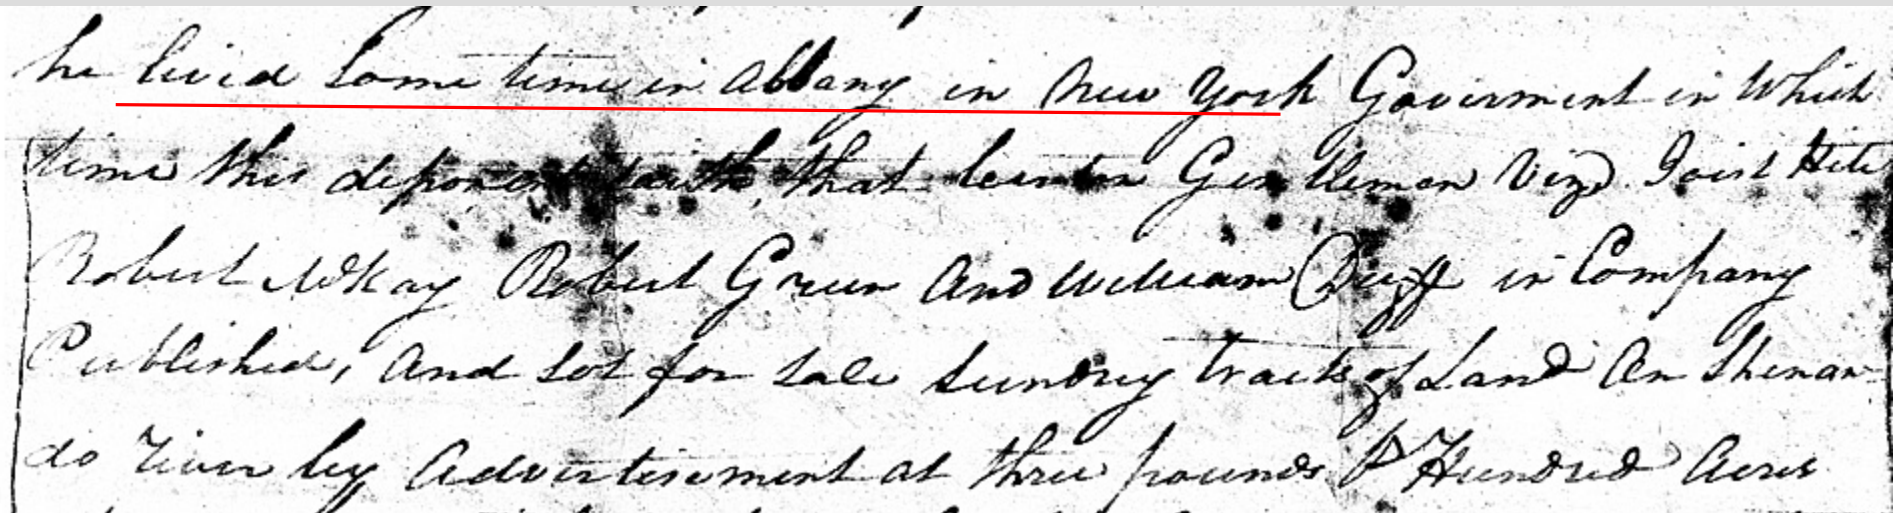 he lived some time in Albany in New York Goverment in Which
time this deponent saith, that certain Gentleman Vizd Joist Hite
Robert McKay Robert Green And William Duff in Company
Published, And Sot for Sale Sundry tracts of Land On Shenan-
do River by Advertisement at three pounds ⅌ Hundred Acres